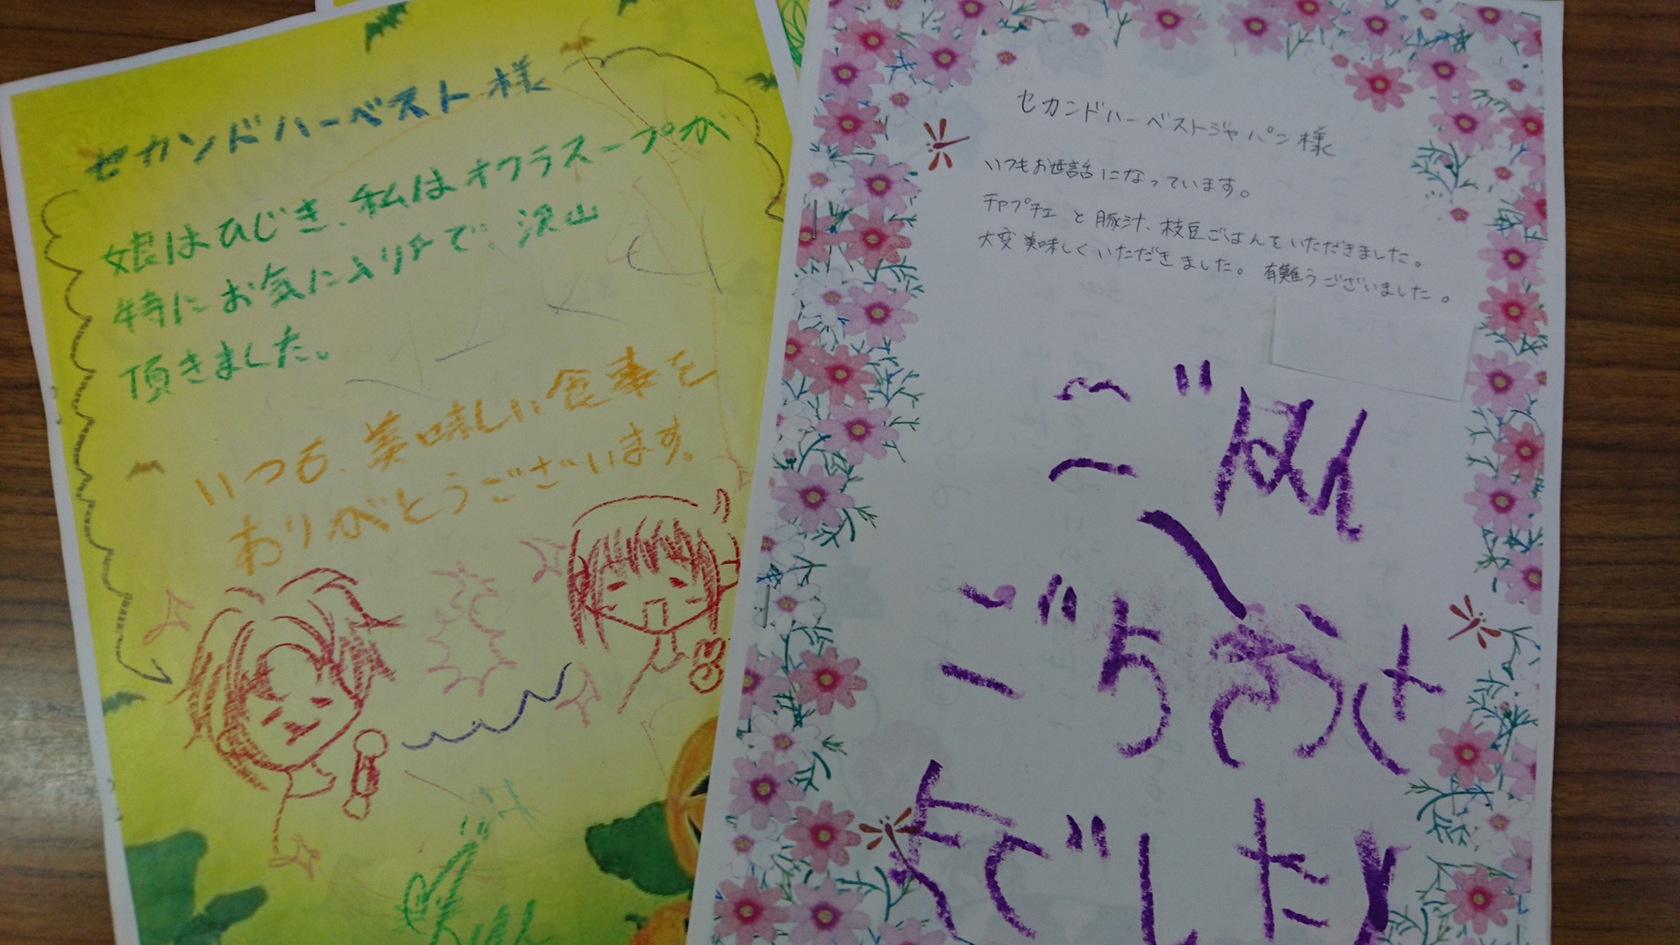 セカンドハーベスト様
娘はひじき、私はオクラスープが
特にお気に入りチで、沢山
頂きました。
いつも、美味しい食事を
ありがとうございます。
セカンドハーベストジャパン様
いつもお世話になっています。
チャプチェ と 豚汁、枝豆ごはんをいただきました。
大変美味しくいただきました。有難うございました。
ごはん
ごちそうさ
までした